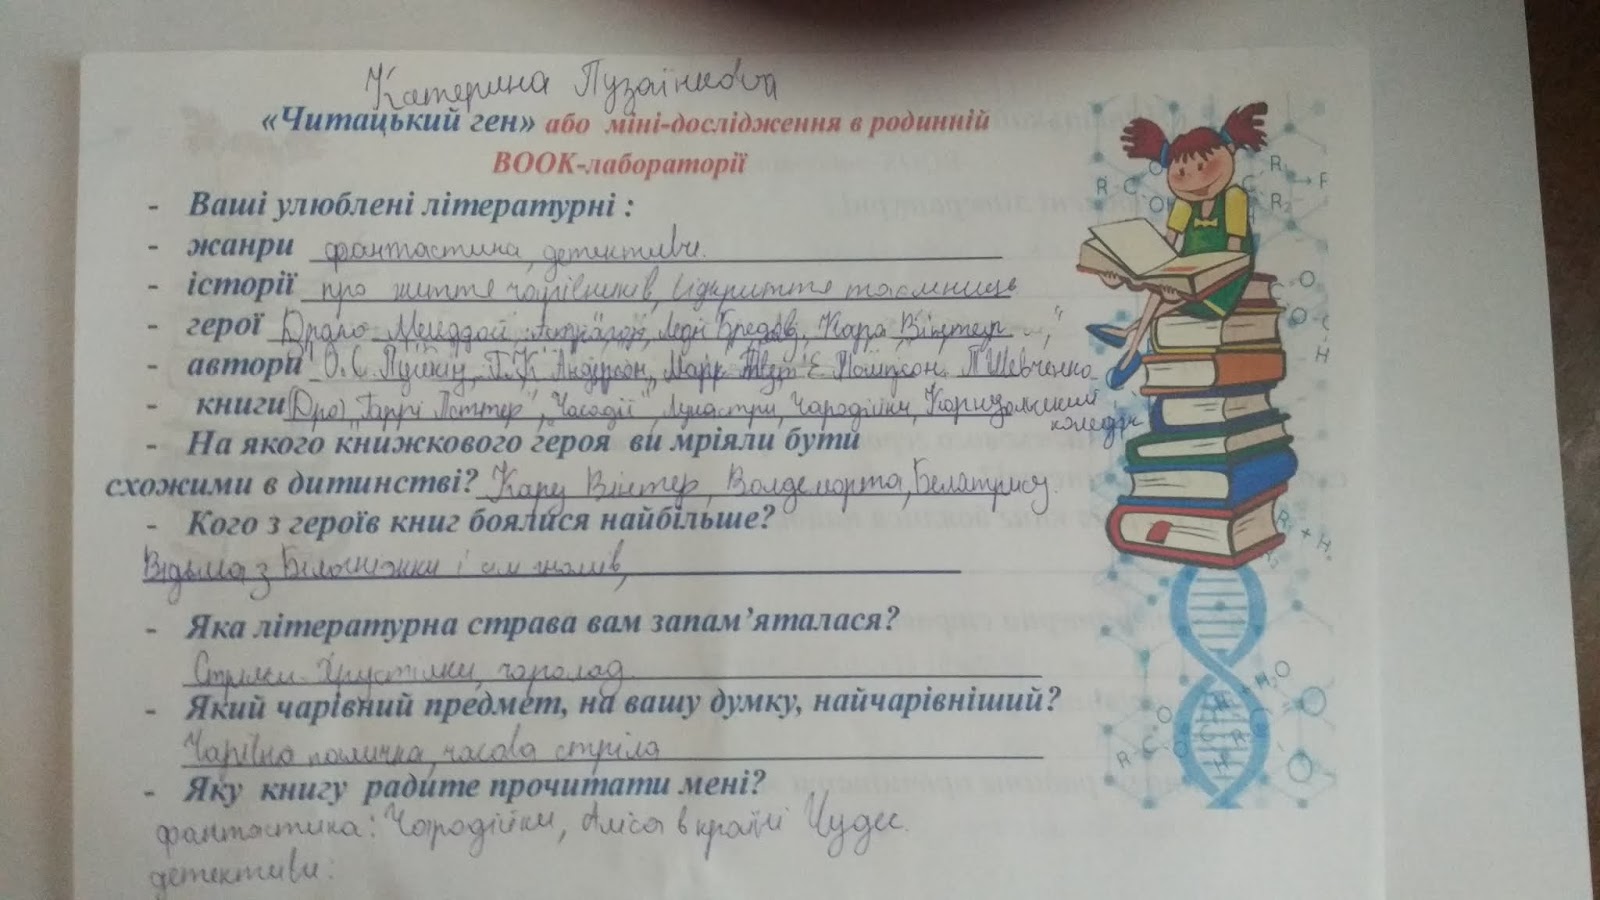 Катерина Пузаінкова
«Читацький ген» або міні-дослідження в родинній
BOOK-лабораторії
- Ваші улюблені літературні :
- жанри фантастика, детективи.
- історії про життя чарівників, відкриття таємниць
- герої Драко Мелфой, Леді Бредові, Кара Вінтер
- автори О.С. Пушкін, Г.К Андерсон, Марк Твен, Е. Томпсон. Т Шевченко
- книги (Про) „Гаррі Поттер", „Часодії", Лунастри, Чародійки, Карнуольський
коледж
- На якого книжкового героя ви мріяли бути
схожими в дитинстві? Кару Вінтер, Волдеморта, Белатрису.
- Кого з героїв книг боялися найбільше?
Відьма з Білосніжки і сім гномів,
- Яка літературна страва вам запам’яталася?
Стрілки-Хрустілки, чаролад
- Який чарівний предмет, на вашу думку, найчарівніший?
Чарівна паличка, часова стріла
- Яку книгу радите прочитати мені?
фантастика: Чародійки, Аліса в країні Чудес.
детективи: